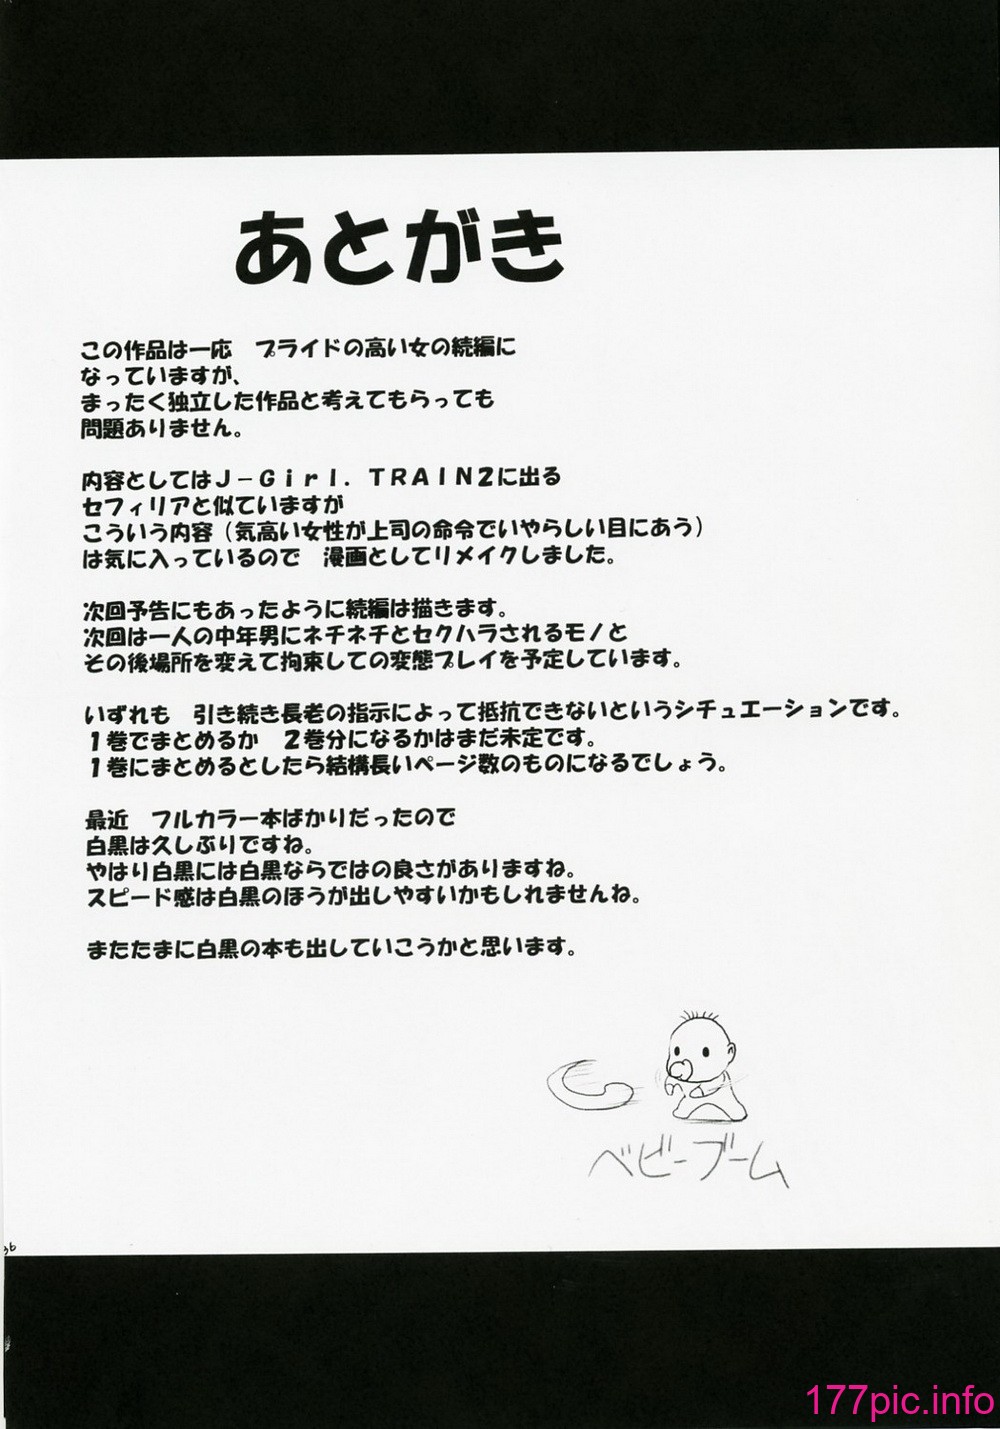 あとがき
この作品は一応　プライドの高い女の続編に
なっていますが、
まったく独立した作品と考えてもらっても
問題ありません。
内容としてはJ-Girl. TRAIN2に出る
セフィリアと似ていますが
こういう内容（気高い女性が上司の命令でいやらしい目にあう）
は気に入っているので　漫画としてリメイクしました。
次回予告にもあったように続編は描きます。
次回は一人の中年男にネチネチとセクハラされるモノと
その後場所を変えて拘束しての変態プレイを予定しています。
いずれも　引き続き長老の指示によって抵抗できないというシチュエーションです。
1巻でまとめるか　2巻分になるかはまだ未定です。
1巻にまとめるとしたら結構長いページ数のものになるでしょう。
最近　フルカラー本ばかりだったので
白黒は久しぶりですね。
やはり白黒には白黒ならではの良さがありますね。
スピード感は白黒のほうが出しやすいかもしれませんね。
またたまに白黒の本も出していこうかと思います。
ベビーブーム
177pic.info